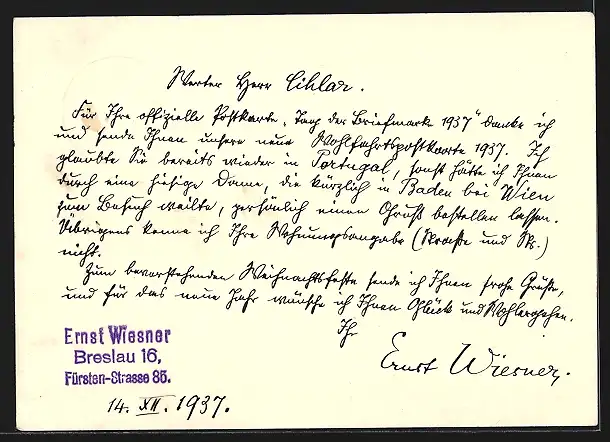 Werter Herr Cihlar.
Für Ihre offizielle Postkarte „Tag der Briefmarke 1937" danke ich
und sende Ihnen unsere neue Wohlfahrtspostkarte 1937. Ich
glaubte Sie bereits wieder in Portugal, sonst hätte ich Ihnen
durch eine hiesige Dame, die kürzlich in Baden bei Wien
zum Besuch weilte, persönlich einen Gruß bestellen lassen.
Übrigens kenne ich Ihre Wohnungsangabe (Straße und Nr.)
nicht.
Zum bevorstehenden Weihnachtsfeste sende ich Ihnen frohe Grüße,
und für das neue Jahr wünsche ich Ihnen Glück und Wohlergehen.
Ihr
Ernst Wiesner.
Ernst Wiesner
Breslau 16,
Fürsten-Strasse 85.
14. XII. 1937.